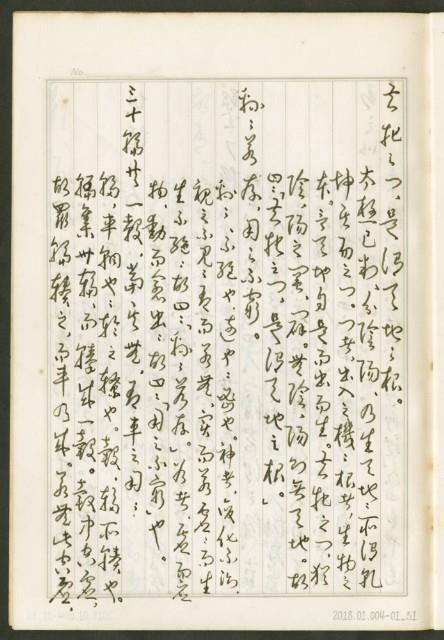 玄牝之門，是謂天地之根。
太極已判，分陰陽，乃生天地，所謂乾
坤其門。門者，出入之機；根者，生物之
本。言天地自是而出而生。玄牝之門，猶
陰陽之闔闢。無陰陽則無天地。故
曰：「玄牝之門，是謂天地之根。」
綿綿若存，用之不窮。
綿綿，不絕也，遠也，密也。神者，變化不測，
視之不見，有而若無，實而若虛，而生
生不絕，故曰：「綿綿若存。」若者，虛而應
物，動而愈出，故曰：「用之不窮」也。
三十輻共一轂，當其無，有車之用。
輻，車輞也，之轑也。轂，輻所轃也。
集卅輻，而轃成一轂。轂中空虛，
故眾輻轃之，而車乃成。若無此空虛，
No.
2018.01.004-01_51